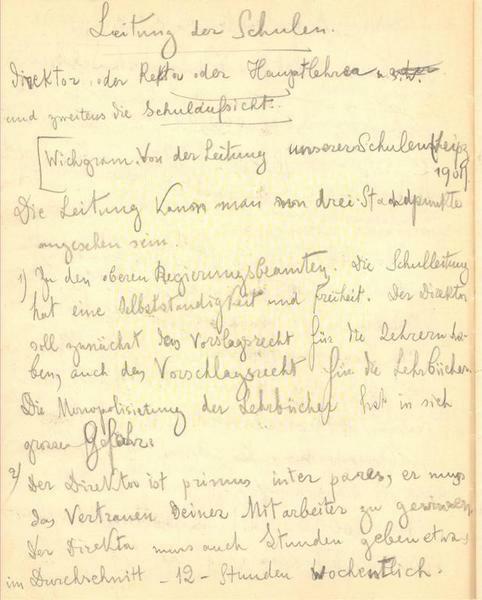 Leitung der Schulen.
Direktor oder Rektor oder Hauptlehrer u.s.w.
und zweitens die Schulaufsicht.
[Wichgram. Von der Leitung unserer Schulen (Leipz
1909
Die Leitung kann man von drei Standpunkte
angesehen sein.
1) Zu den oberen Regierungsbeamten. Die Schulleitung
hat eine Selbstständigkeit und Freiheit. Der Direktor
soll zunächst das Vorslagsrecht für die Lehrern ha-
ben, auch das Vorschlagsrecht für die Lehrbücher.
Die Monopolisierung der Lehrbücher hat in sich
grosse Gefahr.
2) Der Direktor ist primus inter pares, er muss
das Vertrauen Deiner Mitarbeiter zu gewinnen
Der Direkto muss auch Stunden geben etwa
im Durchschnitt - 12 - Stunden wochentlich.